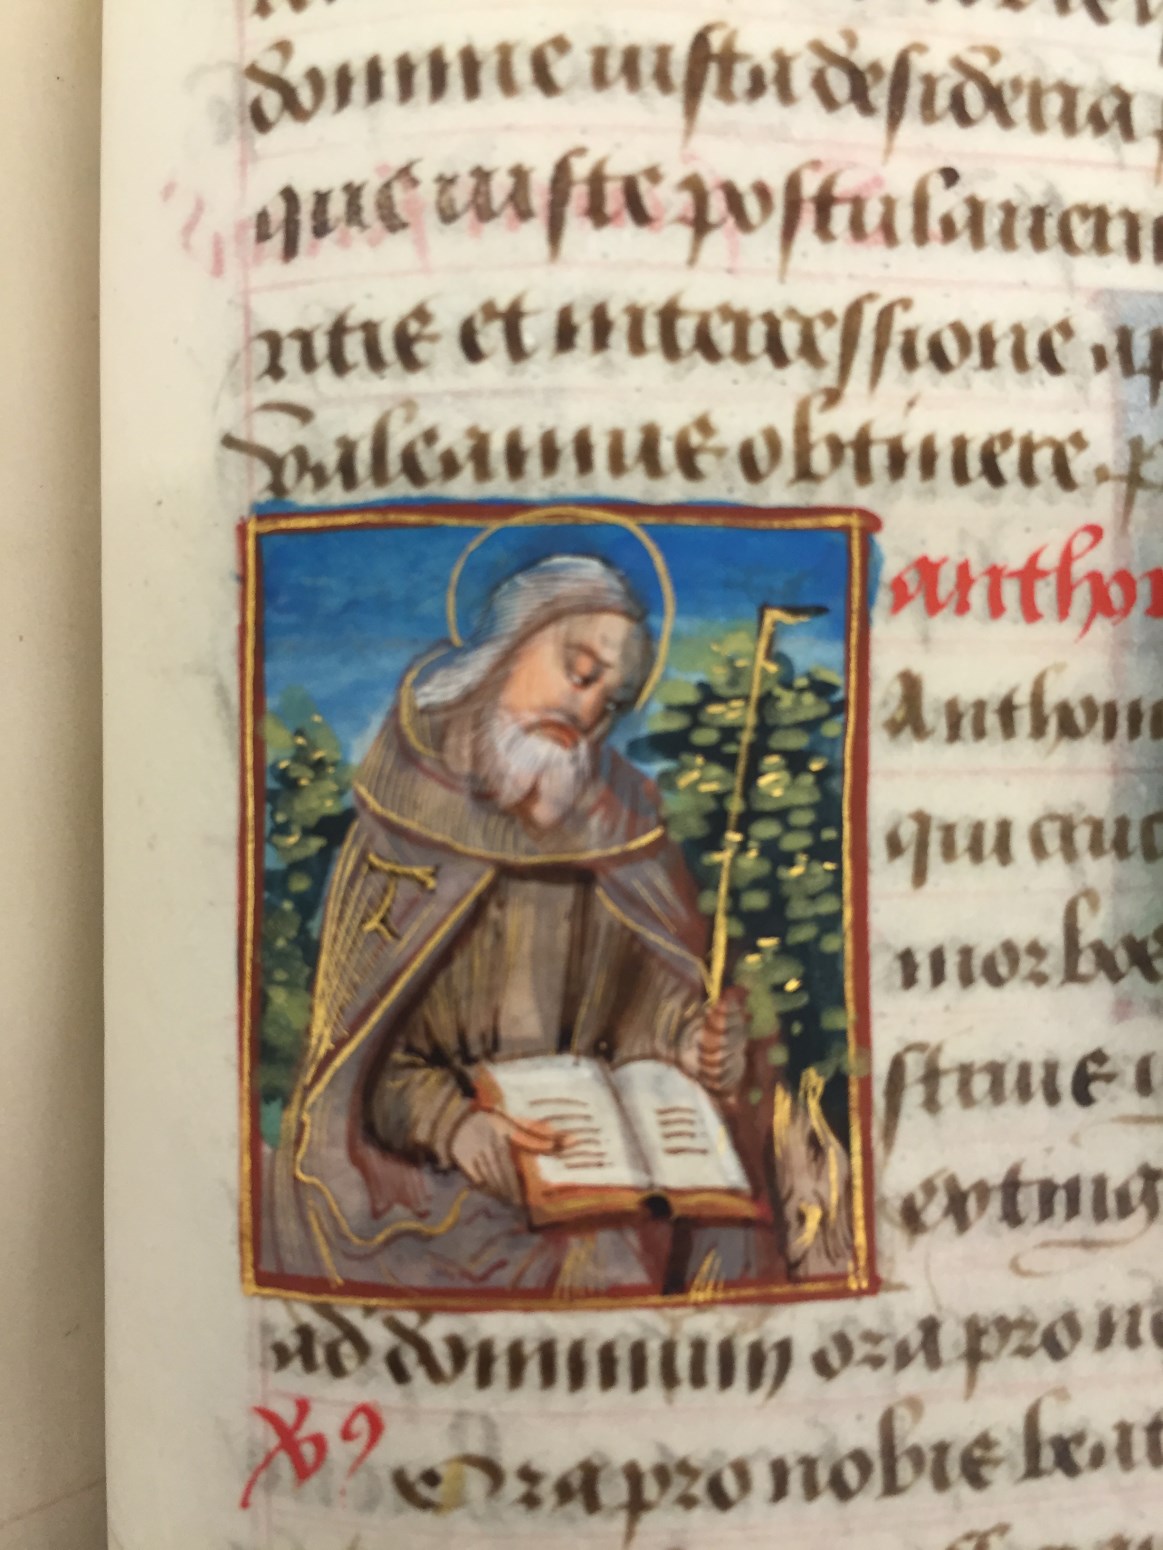 domine iusta desideria
que iuste postulaueru
ntie et intercessione ap
valeamus obtinere. p
antho
Anthoni
qui cruc
morbos
strius
exting
ad dominum ora pro no
Ora pro nobis beat